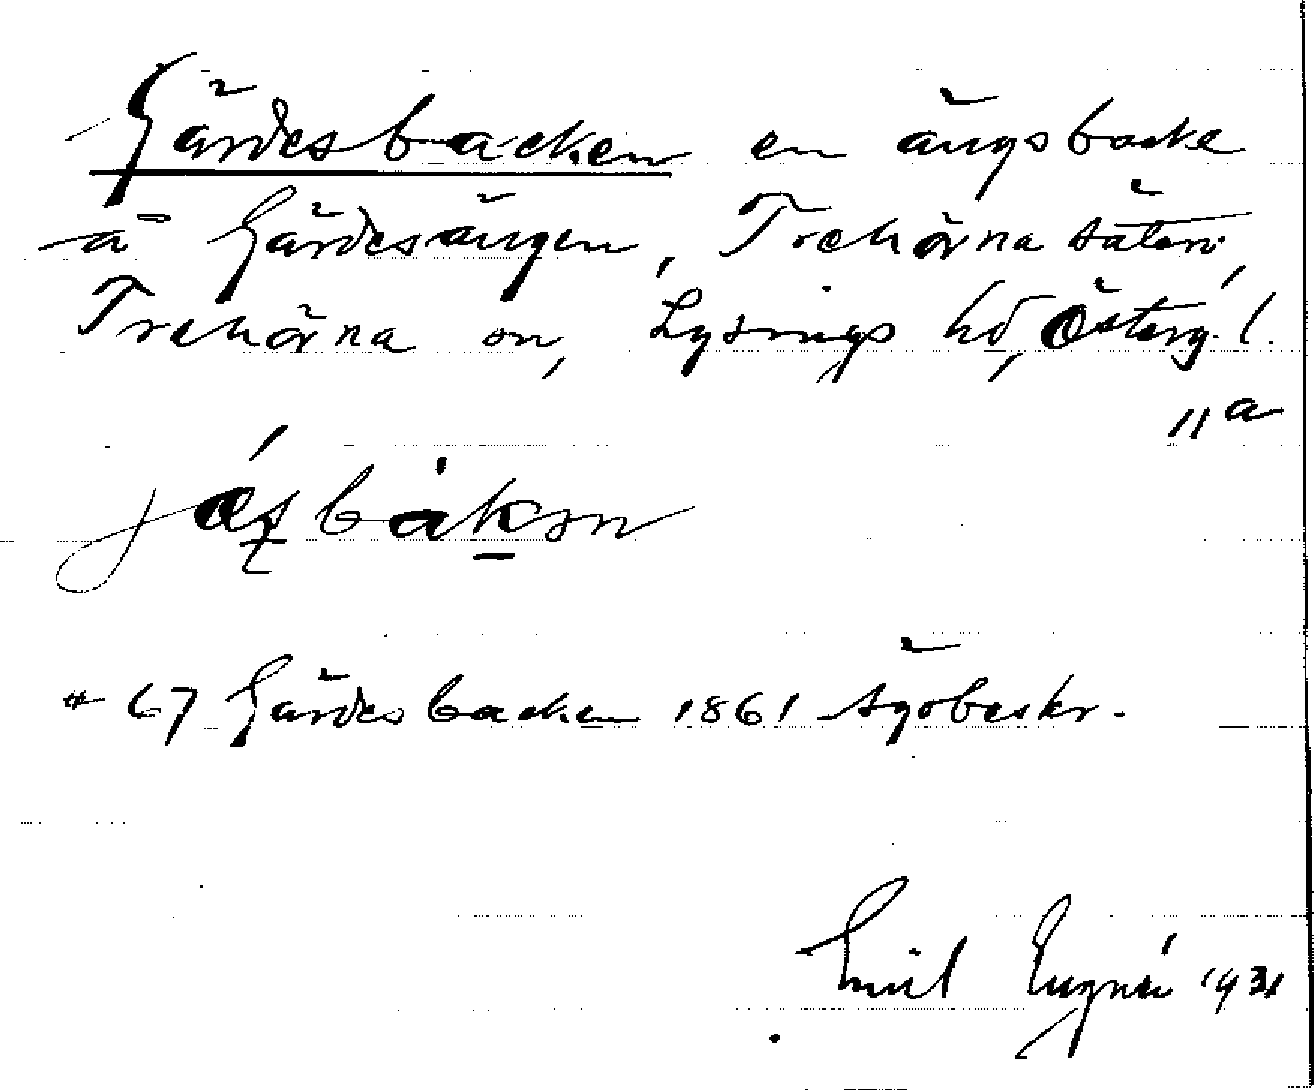 Gärdesbacken en ängsbacke
å Gärdesängen, Trehörna säteri,
Trehörna sn, Lysings hd, Österg. l.
11a
jæsbàkən
# 67 Gärdesbacken 1861 Ägobeskr.
Emil 1931